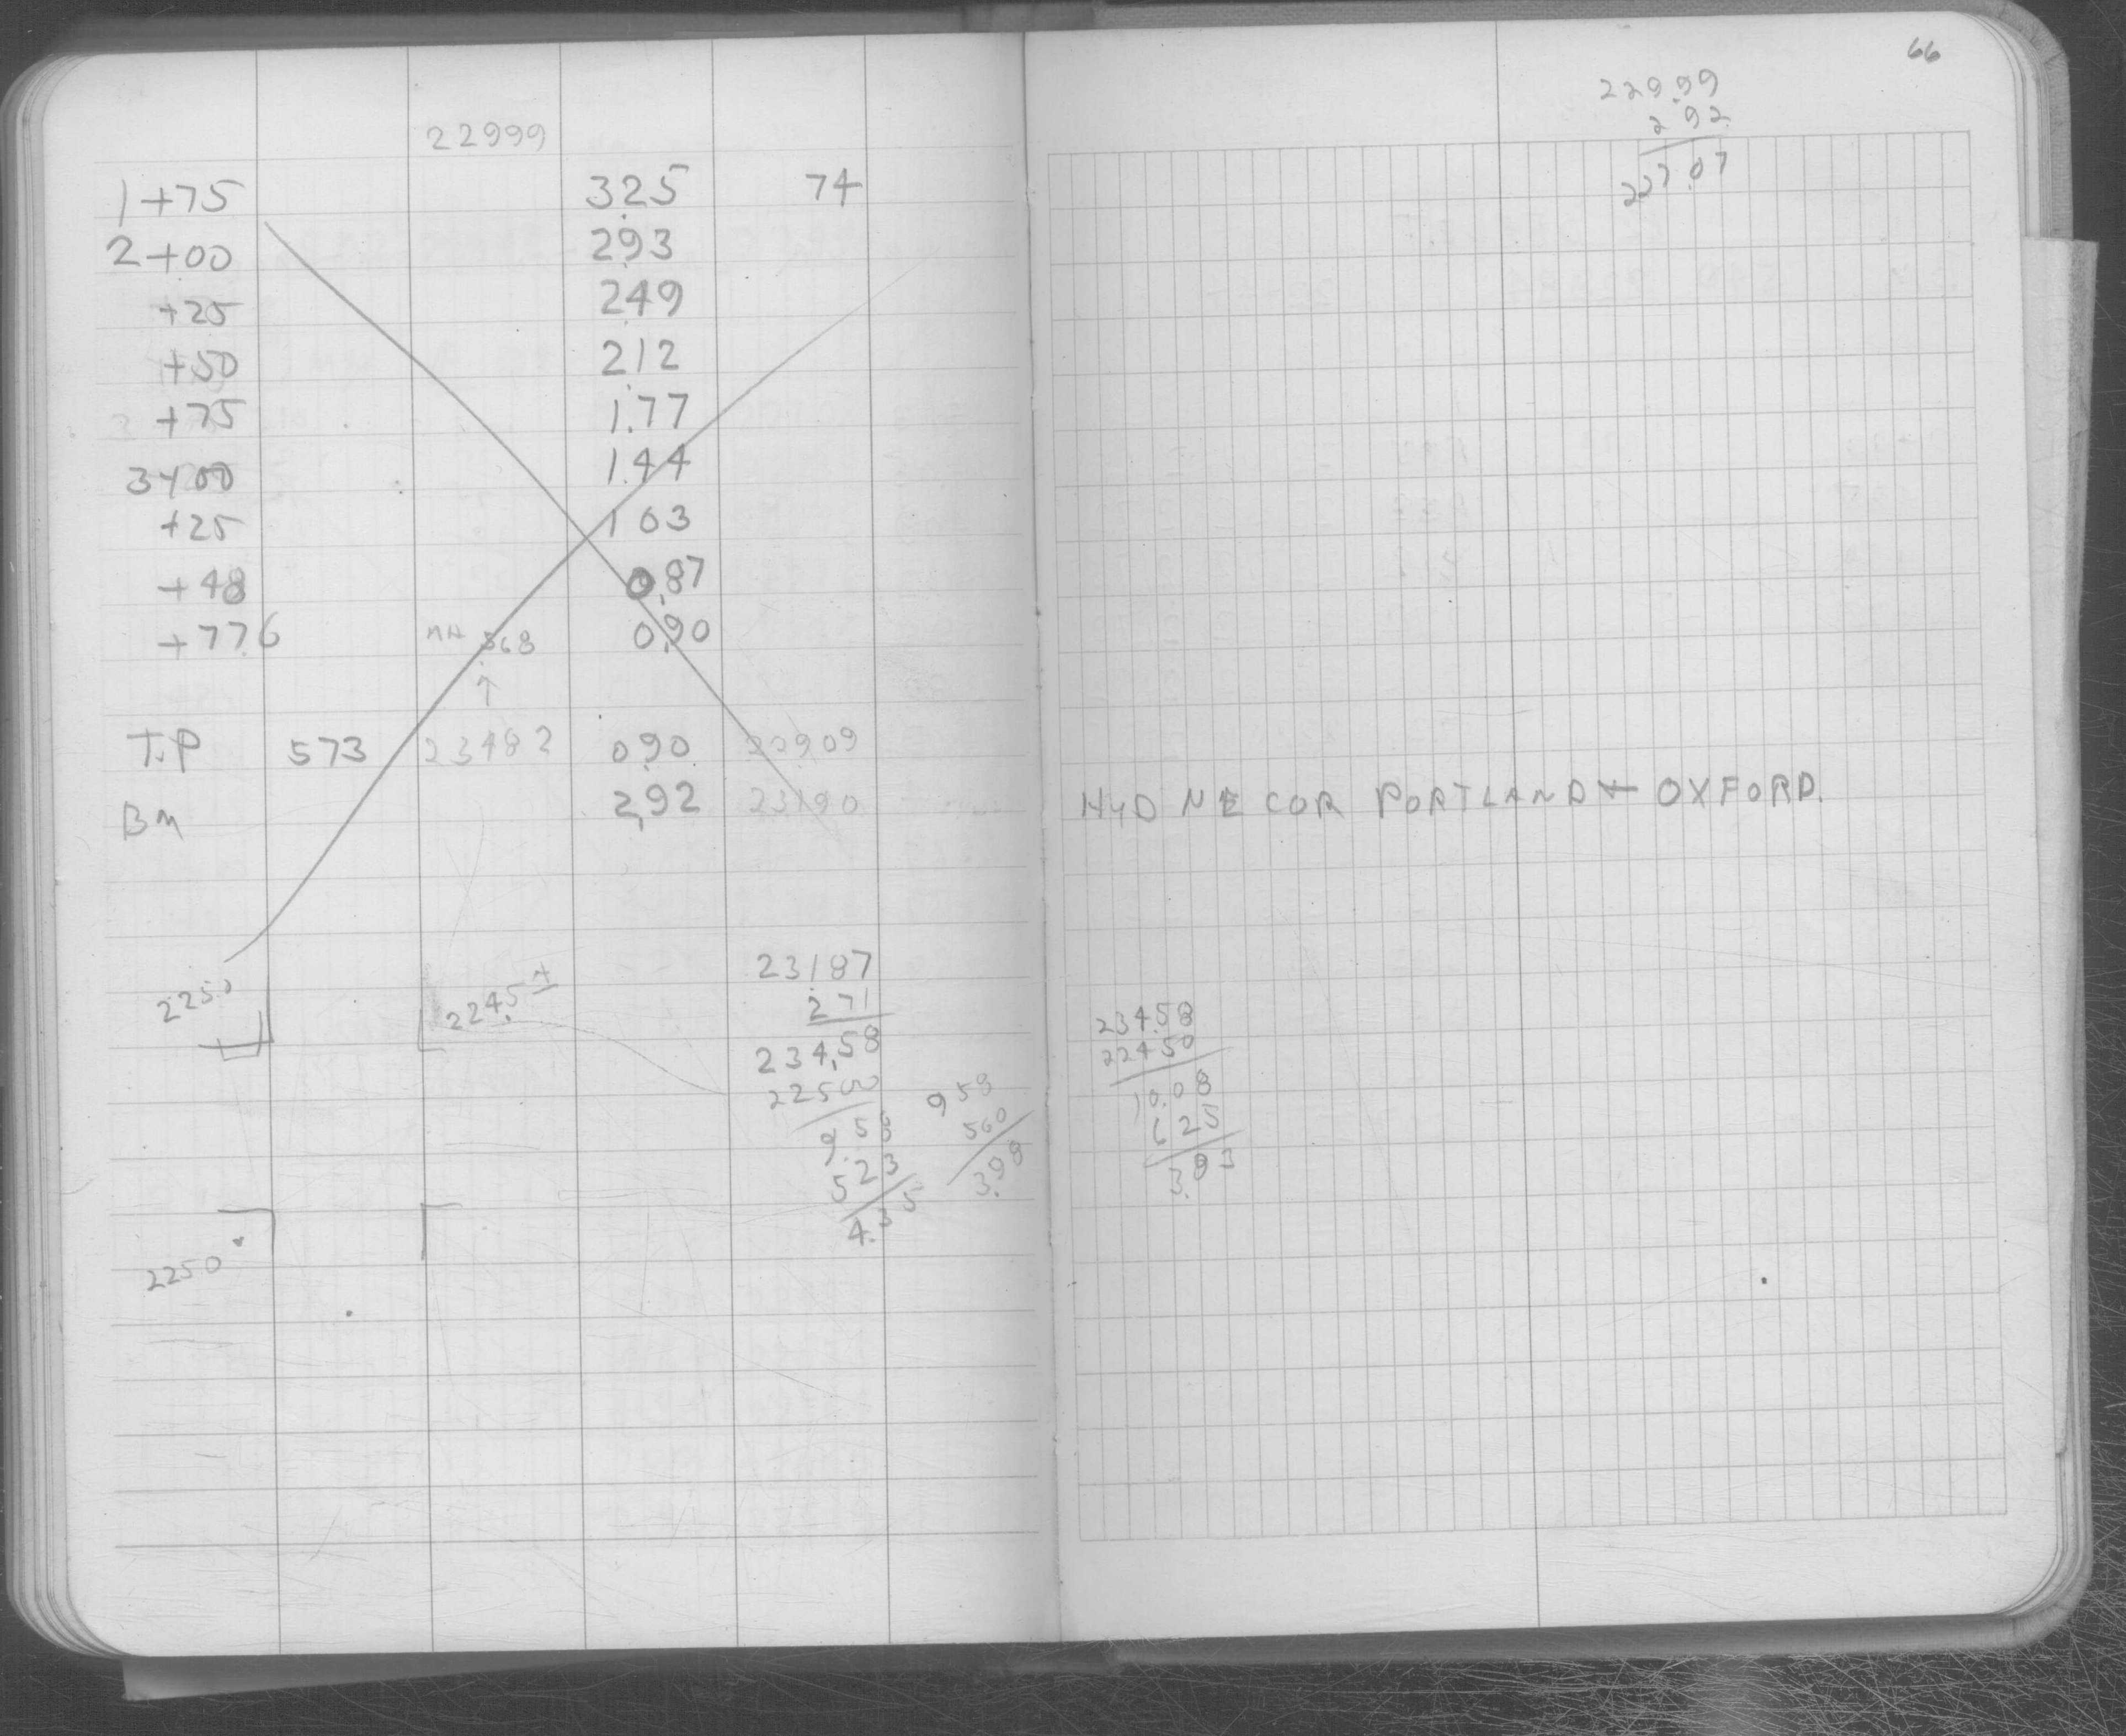 22999
1+75 3.25 74
2+00 2.93
+25 2.49
+50 2.12
+75 1.77
3+00 1.44
+25 1 03
+48 0.87
+77.6 MH 5.68 0.90
↑
T.P 573 23482 0.90 22909
BM 2.92 23190
2250
224.5±
231.87
2 71
234.58
22500
9.58
5 23
4.35
9 58
5 60
3.98
2250
66
229.99
2 92
227.07
HYD NE COR PORTLAND + OXFORD.
234.58
224 50
10.08
6 25
3.83